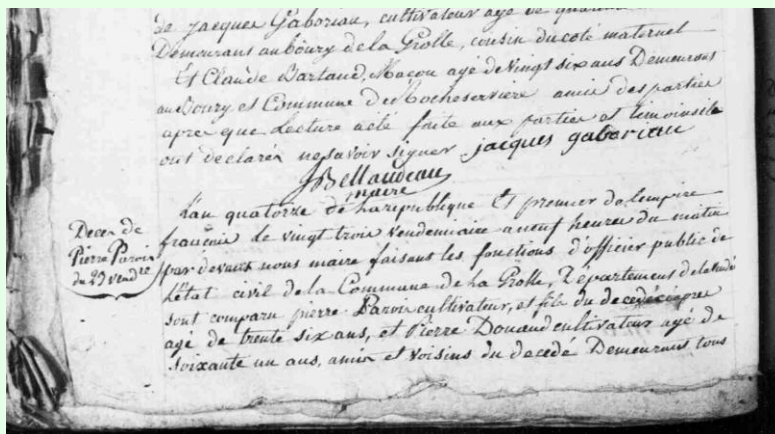 de jacques Gaboriau, cultivateur agé de
Demeurans au bourg de la Grolle, cousin du coté maternel
Et Claude Bartaud, Maçon agé de vingt six ans Demeurans
au Bourg et Commune de Rocheserviere amis des parties
apre que Lecture a été faite aux parties et temoins ils
ont declarés ne savoir signer jacques gaboriau
JBellaudeau
maire
Deces de
Pierre Parois
du 23 vendre
L'an quatorze de la republique Et premier de L'empire
français le vingt trois vendemiaire a neuf heures du matin
par devant nous maire faisant les fonctions d'officier public de
L'état civil de la Commune de La Grolle, Département de la
sont comparu pierre Parois cultivateur, et fils du decedé ci apre
agé de trente six ans, et Pierre Douaud cultivateur agé de
soixante un ans, amis et voisins du decedé Demeurans tous